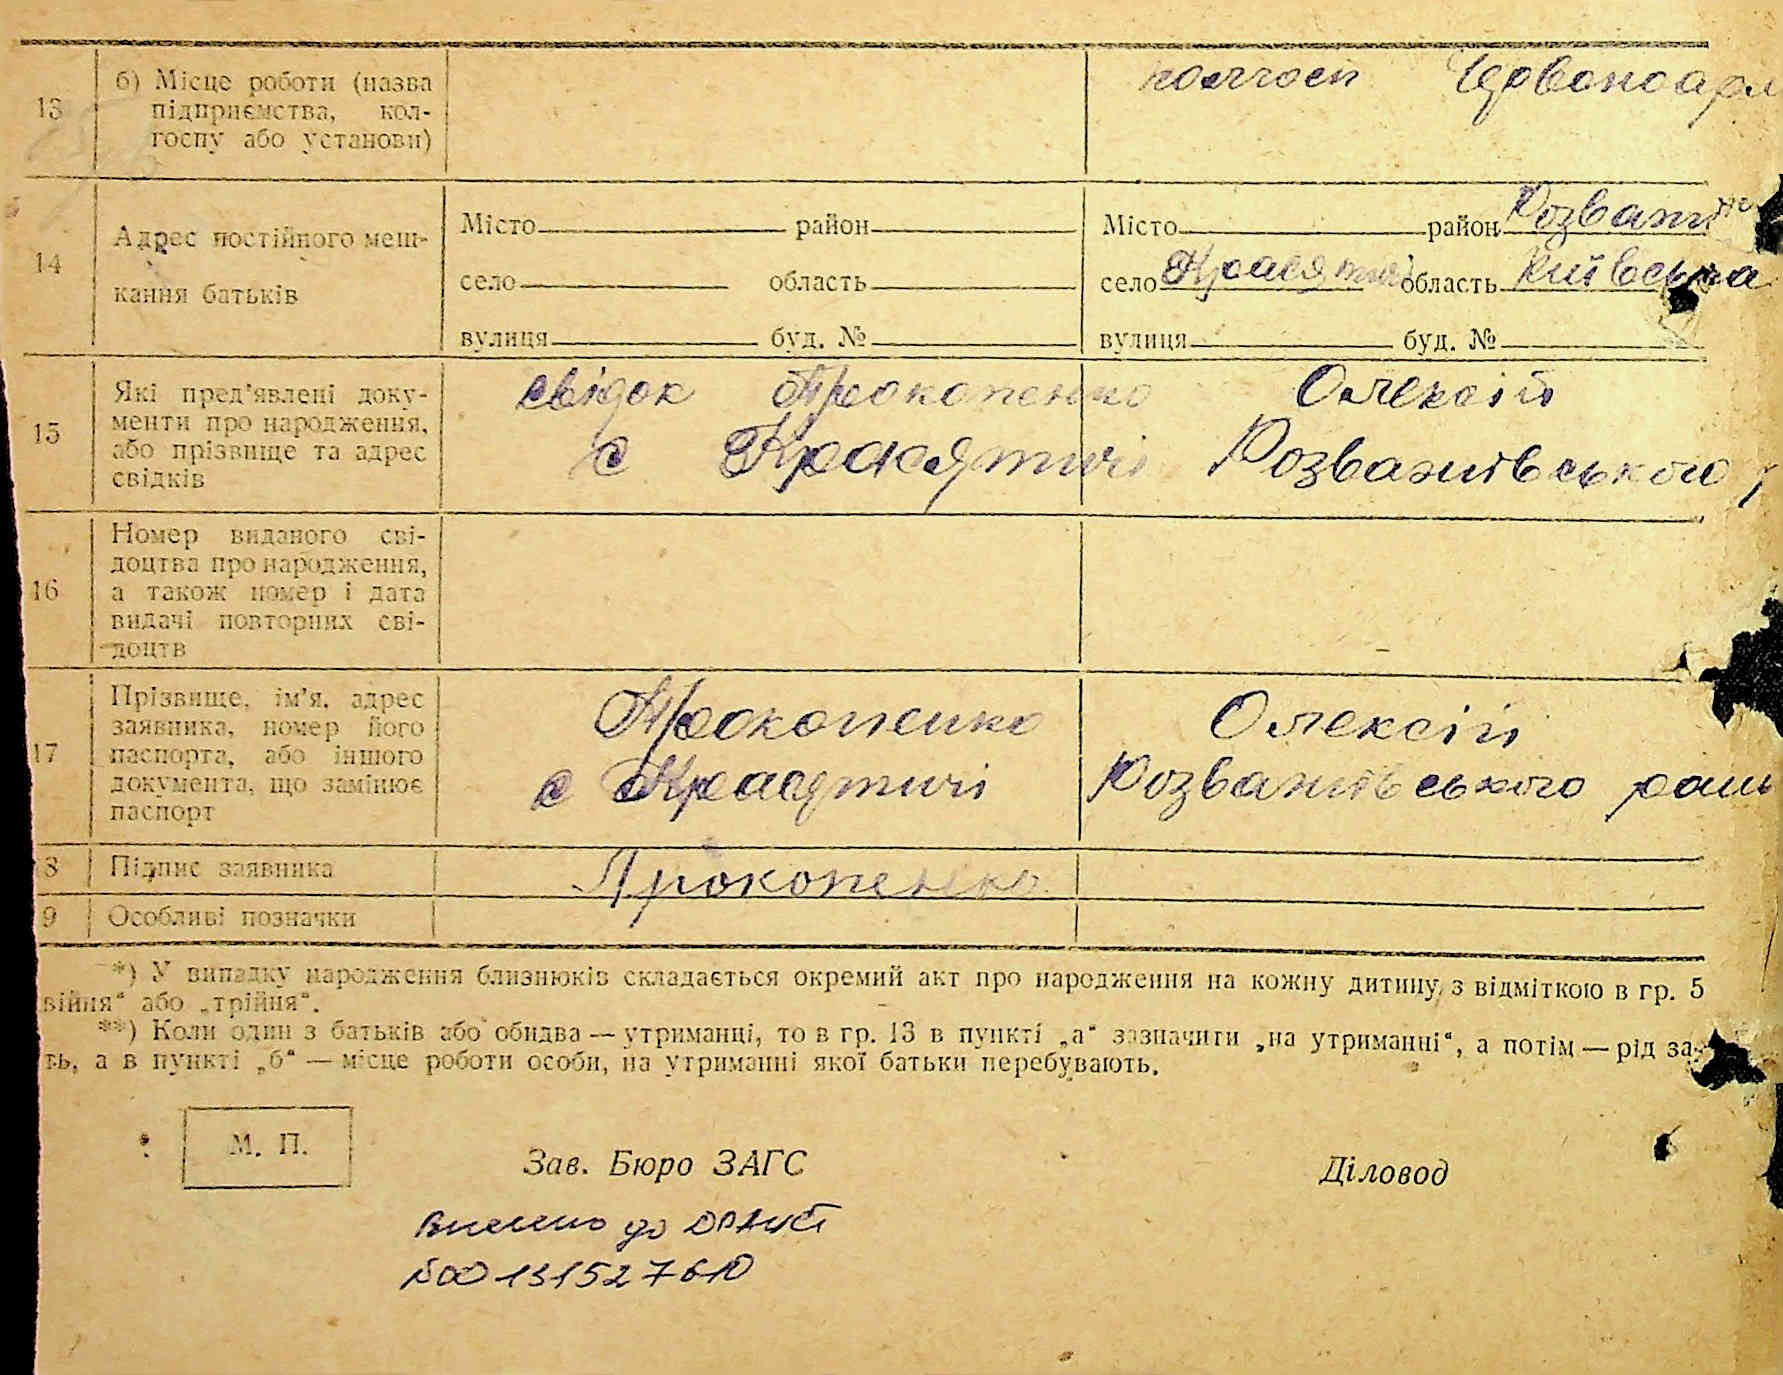 13 б) Місце роботи (назва
підприємства, кол-
госпу або установи) колгосп Червоноарм
14 Адрес постійного меш-
кання батьків
Місто район Місто район Розваж
село область село Красятичі область Київська
вулиця буд. № вулиця буд. №
15 Які пред'явлені доку-
менти про народження,
або прізвище та адрес
свідків
свідок Прокопенко Олексій
с Красятичі Розважівського р
16 Номер виданого сві-
доцтва про народження,
а також номер і дата
видачі повторних сві-
доцтв
17 Прізвище, ім'я, адрес
заявника, номер його
паспорта, або іншого
документа, що замінює
паспорт
Прокопенко Олексій
с Красятичі Розважівського
8 Підпис заявника Прокопенко
9 Особливі позначки
*) У випадку народження близнюків складається окремий акт про народження на кожну дитину з відміткою в гр. 5
війня" або „трійня".
**) Коли один з батьків або обидва — утриманці, то в гр. 13 в пункті „а" зазначити „на утриманні", а потім — рід за-
ть, а в пункті „б" — місце роботи особи, на утриманні якої батьки перебувають.
М. П.
Зав. Бюро ЗАГС Діловод
Внесено до ДРАЦС
№00131527610